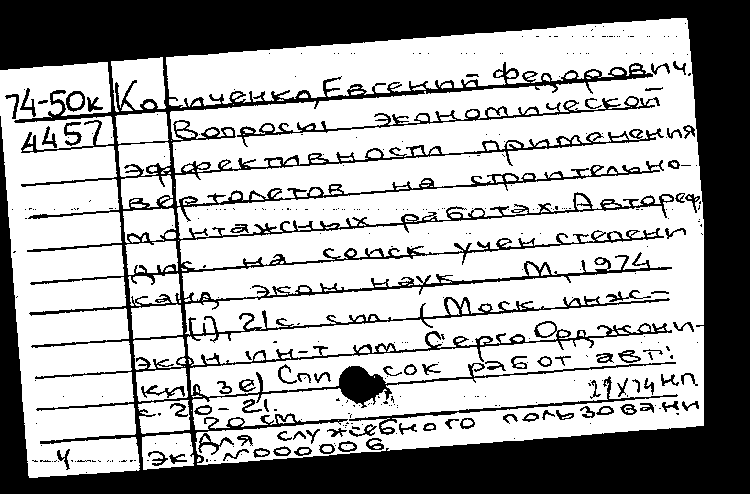 74-50к Косиченко, Евгений Федорович.
4457 Вопросы экономической
эффективности применения
вертолетов на строительно-
монтажных работах. Автореф.
дис. на соиск. учен. степени
канд. экон. наук. М., 1974
[1], 21 с. с ил. (Моск. инж.-
экон. ин-т им. Серго Орджони-
кидзе) Список работ авт.:
с. 20-21.
29X74 НП
20 см
Для служебного пользовани
Экз. №000006.
Ч